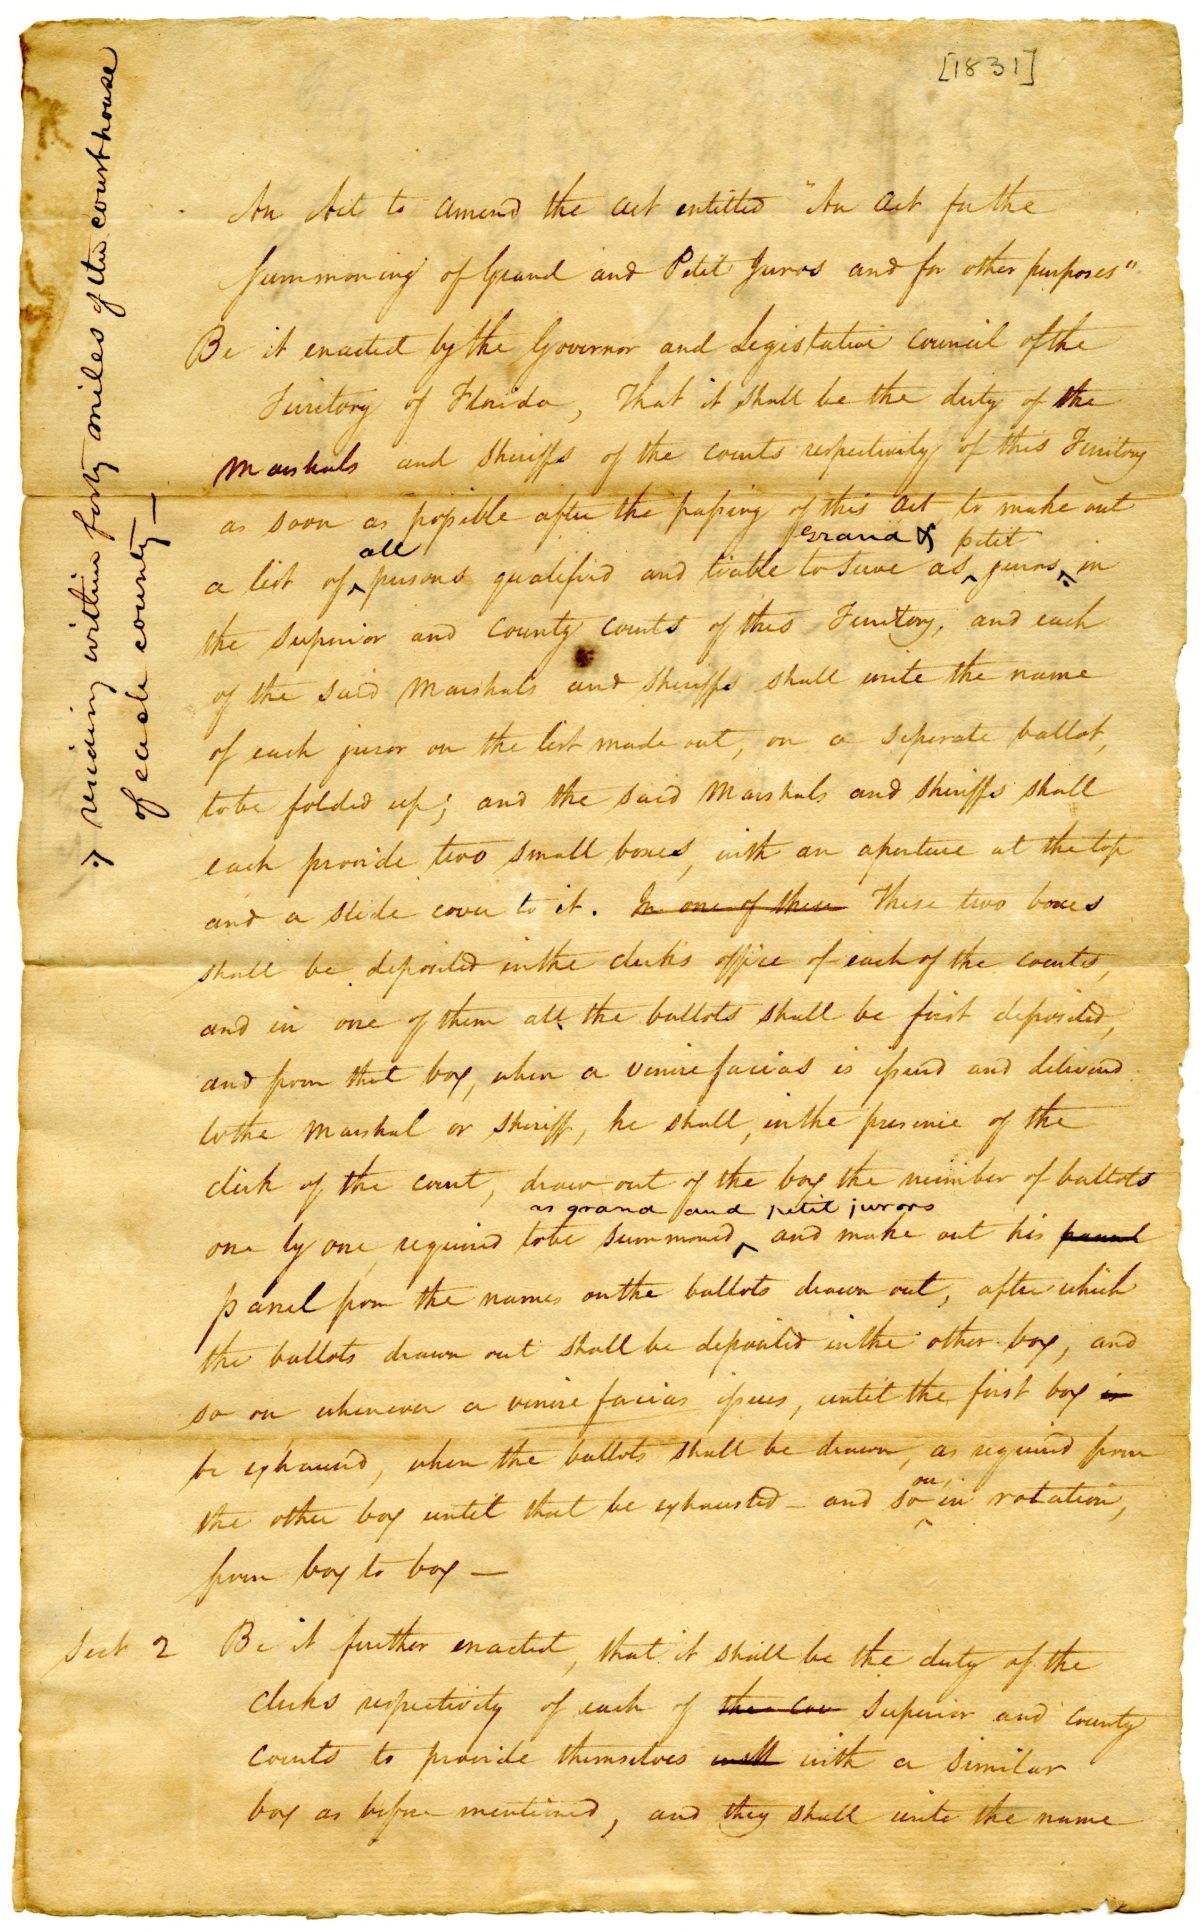 [1831]
An Act to amend the act entitled "An act for the
Summoning of Grand and Petit Jurors and for other purposes"
Be it enacted by the Governor and Legislative Council of the
Territory of Florida, That it shall be the duty of the
Marshals and Sheriffs of the courts respectively of this Territory
as soon as possible after the passing of this act to make out
all grand & petit
a list of ^ persons qualified and liable to serve as ^ jurors ^ in
the Superior and County Courts of this Territory, and each
of the said Marshals and Sheriffs shall write the name
of each juror on the list made out, on a seperate ballot,
to be folded up; and the said Marshals and Sheriffs shall
each provide two small boxes, with an aperture at the top
and a slide cover to it. In one of these These two boxes
shall be deposited in the clerks office of each of the courts,
and in one of them all the ballots shall be first deposited,
and from that box, when a venire facias is issued and delivered
to the Marshal or Sheriff, he shall, in the presence of the
clerk of the court, draw out of the box the number of ballots
as grand and petit jurors
one by one, required to be summoned ^ and make out his pannel
panel from the names on the ballots drawn out, after which
the ballots drawn out shall be deposited in the other box, and
so on whenever a venire facias issues, until the first box is
be exhausted, when the ballots shall be drawn, as required from
on,
the other box until that be exhausted - and so ^ in rotation,
from box to box —
Sect 2 Be it further enacted, that it shall be the duty of the
clerks respectively of each of the cou Superior and County
Courts to provide themselves with a similar
box as before mentioned, and they shall write the name
residing within forty miles of the courthouse
of each county —